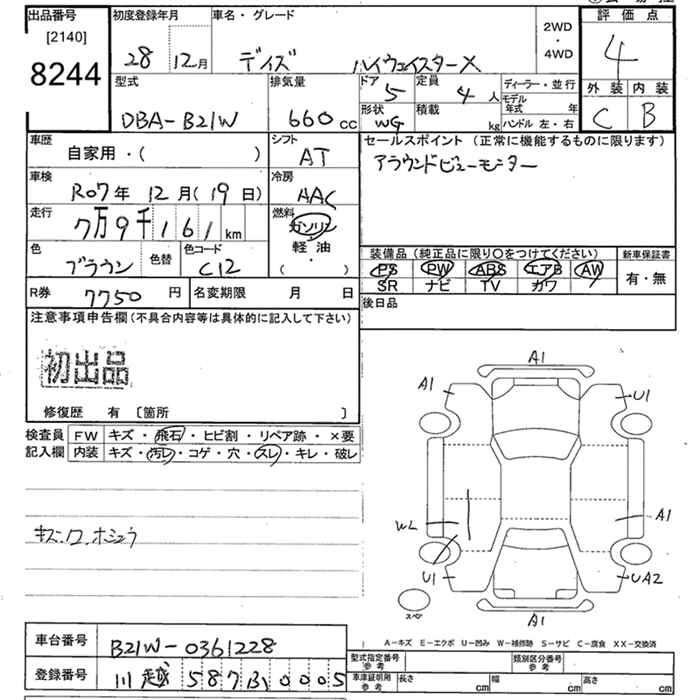 出品番号 初度登録年月 車名・グレード 2WD・4WD 評価点
[2140]
8244
28 12月 デイズ ハイウェイスターX 4
型式 排気量 ドア 定員 ディーラー・並行 外装 内装
DBA-B21W 660cc 5 4人 モデル年式 年 C B
形状 積載 WG kg ハンドル 左・右
車歴 シフト セールスポイント (正常に機能するものに限ります)
自家用・( ) AT アラウンドビューモニター
車検 冷房
R07年 12月(19日) AAC
走行 燃料
7万9千161km ガソリン
軽油
( )
色 色替 色コード 装備品 (純正品に限り〇をつけてください) 新車保証書
ブラウン C12 PS PW ABS エアB AW 有・無
SR ナビ TV カワ
R券 7750円 名変期限 月 日 後日品
注意事項申告欄(不具合内容等は具体的に記入して下さい)
初出品
修復歴 有 〔箇所 〕
検査員 FW キズ・飛石・ヒビ割・リペア跡・×要
記入欄 内装 キズ・汚レ・コゲ・穴・スレ・キレ・破レ
A1
A1 U1
WL A1
U1 UA2
スペア A1
車台番号 B21W-0361228
A-キズ E-エクボ U-凹み W-補修跡 S-サビ C-腐食 XX-交換済
登録番号 川越 587 0005
型式指定番号 参考 類別区分番号 参考
車庫証明用 参考 長さ cm 幅 cm 高さ cm